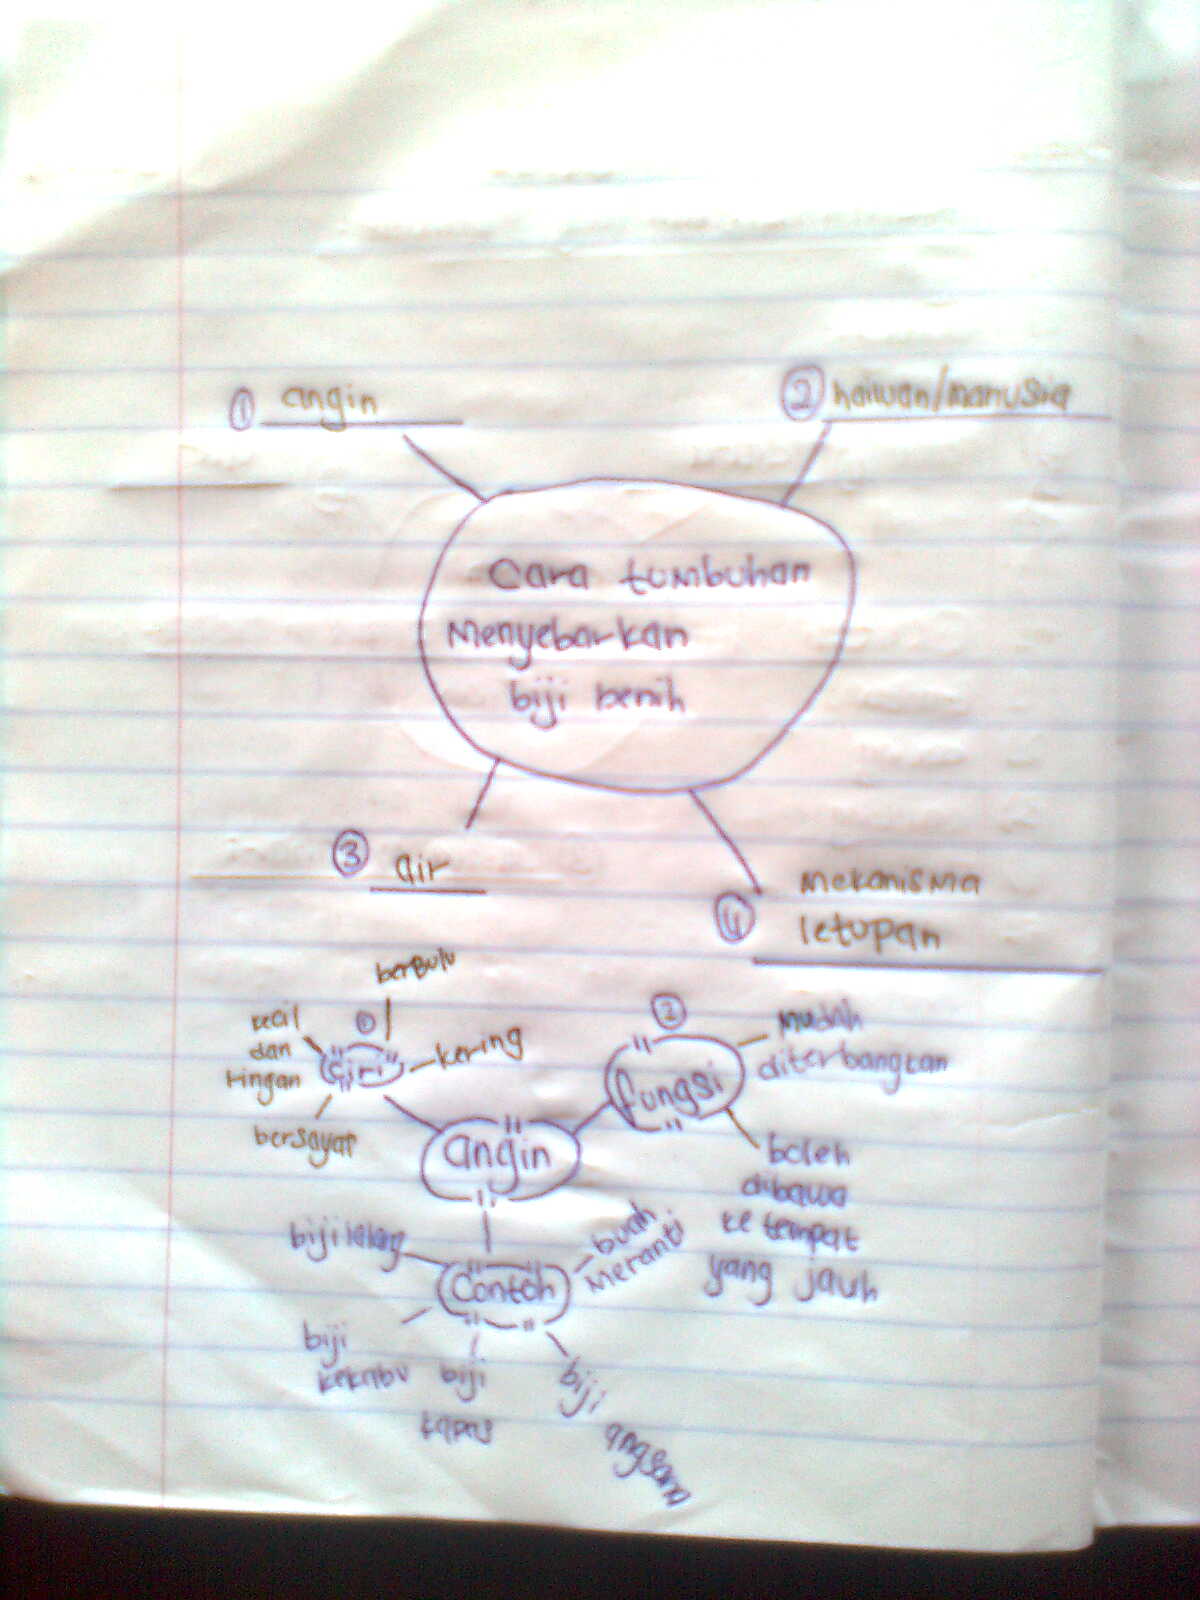 ① angin
② haiwan/manusia
Cara tumbuhan
Menyebarkan
biji benih
③ air
④ mekanisma
letupan
① Ciri
berbulu
kecil
dan
ringan
kering
bersayap
angin
② fungsi
mudah
diterbangkan
boleh
dibawa
ke tempat
yang jauh
Contoh
biji lalang
buah
Meranti
biji
kekabu
biji
kapas
biji
angsana